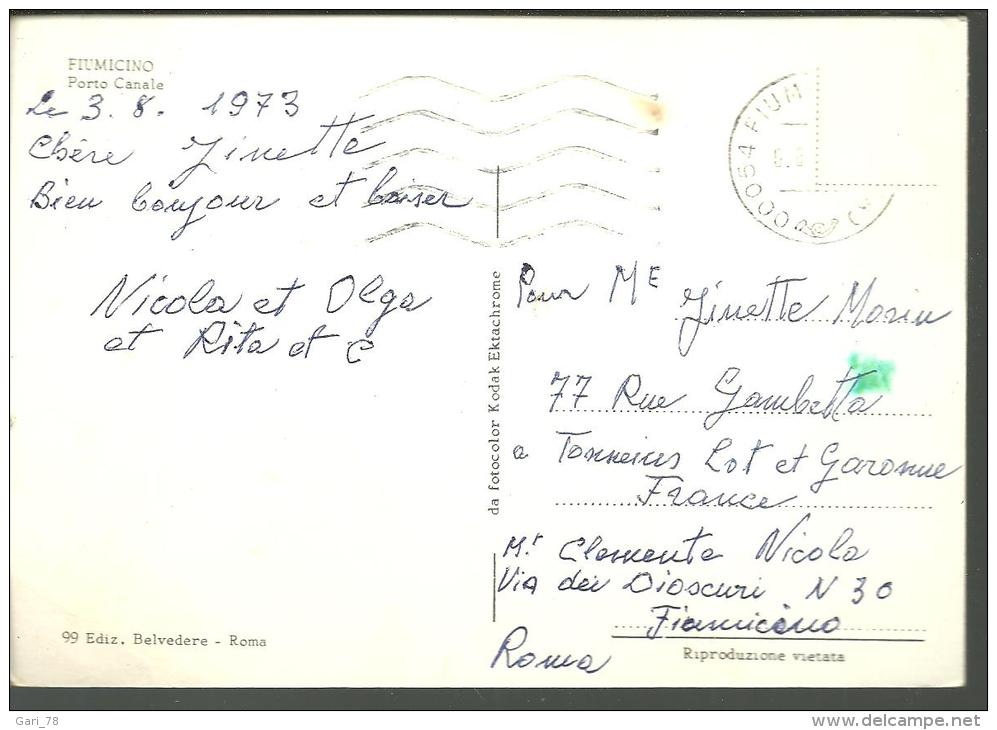 FIUMICINO
Porto Canale
Le 3. 8. 1973
Chère Jinette
Bien bonjour et baiser
Nicola et Olga
et Rita et C
99 Ediz. Belvedere - Roma
da fotocolor Kodak Ektachrome
00054 FIUM
Pour Mᴱ Jinette Morin
77 Rue Gambetta
a Tonneins Lot et Garonne
France
Mʳ Clemente Nicola
Via dei Dioscuri N 30
Fiumicino
Roma
Riproduzione vietata
Gari_78
www.delcampe.net